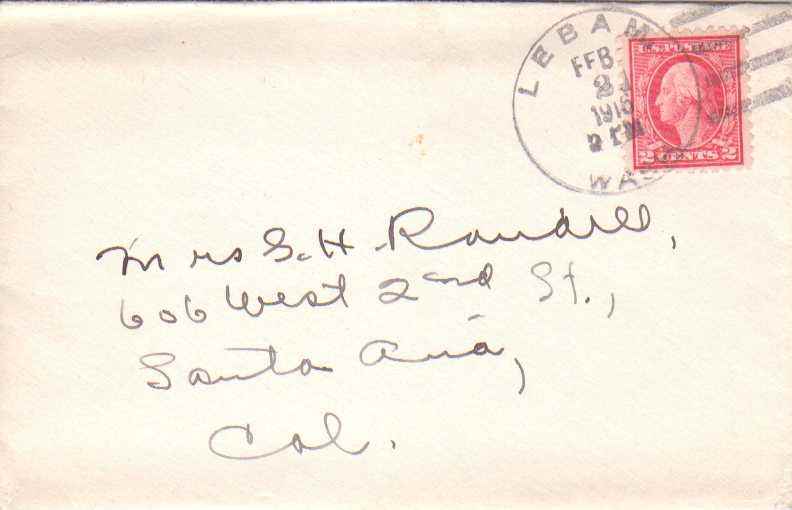 LEBAM
FEB
2
191
WAS
U.S. POSTAGE
2 CENTS 2
Mrs S. H. Randell,
606 West 2nd St.,
Santa Ana,
Cal.